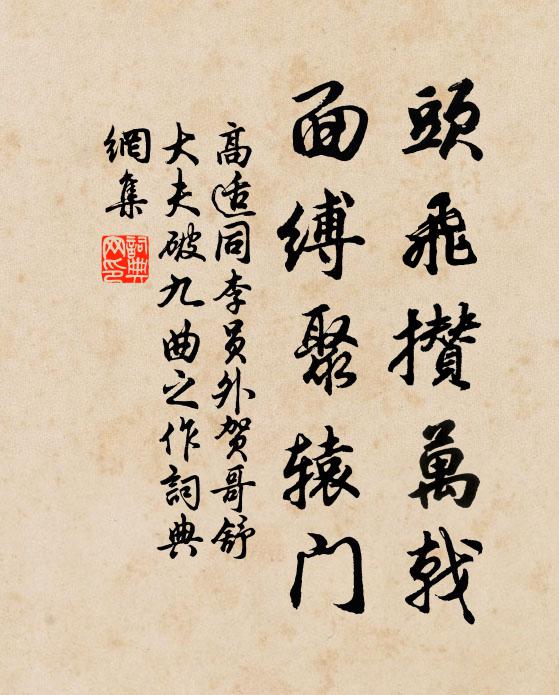 頭飛攅萬戟
面縛聚辕门
高适同李员外贺哥舒
大夫破九曲之作詞典
網集
詞典
网印